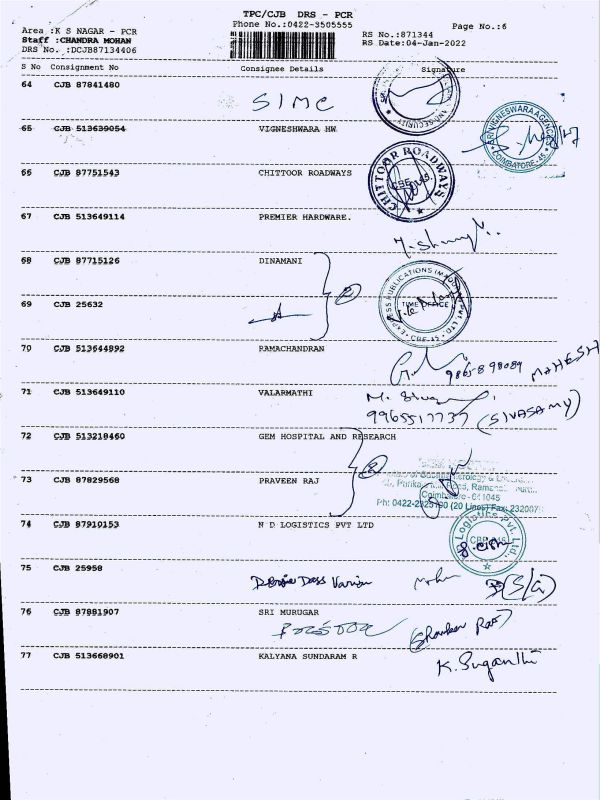 TPC/CJB DRS - PCR
Area :K S NAGAR - PCR
Phone No.:0422-3505555
Page No.:6
Staff :CHANDRA MOHAN
RS No.:871344
DRS No. :DCJB87134406
RS Date:04-Jan-2022
S No Consignment No Consignee Details Signature
64 CJB 87841480
SIMC
AND SECURITY
65 CJB 513639054 VIGNESHWARA HW
COIMBATORE-45
66 CJB 87751543 CHITTOOR ROADWAYS
CHITTOOR ROADWAYS
CBE-45.
67 CJB 513649114 PREMIER HARDWARE.
68 CJB 87715126 DINAMANI
2
69 CJB 25632
TIME OFFICE
CBE-45
70 CJB 513644892 RAMACHANDRAN
MAHESH
71 CJB 513649110 VALARMATHI
9965517737 (SIVASAMY)
72 CJB 513218460 GEM HOSPITAL AND RESEARCH
2
73 CJB 87829568 PRAVEEN RAJ
Coimbatore - 641045
74 CJB 87910153 N D LOGISTICS PVT LTD
Logistics Pvt. Ltd.,
75 CJB 25958
76 CJB 87881907 SRI MURUGAR
77 CJB 513668901 KALYANA SUNDARAM R
K. Suganthi